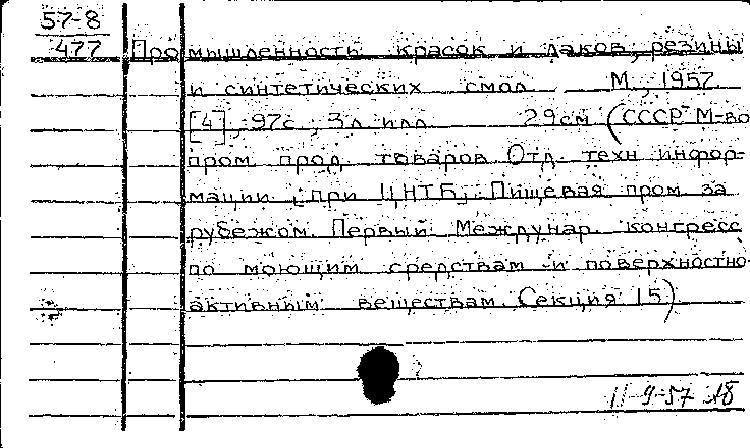 57-8
477
Промышленность красок и лаков, резины
и синтетических смол М., 1957.
[4], 97с., 3л илл. 29см (СССР М-во
пром. прод. товаров Отд. техн инфор-
мации при ЦНТБ. Пищевая пром. за
рубежом. Первый Междунар. конгресс
по моющим средствам и поверхностно-
активным веществам. Секция 15)
11-9-57